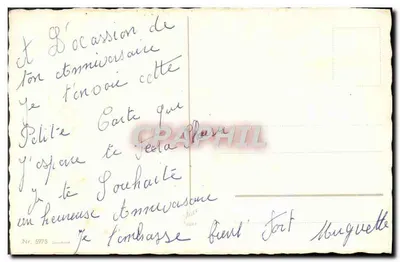 A L'ocassion de
ton Anniversaire
je t'envoie cette
Petite Carte qui
j'espere te fera Plaisir
je te Souhaite
un heureuse Anniversaire
je t'embrasse bient fort Muguette
CPAPHIL